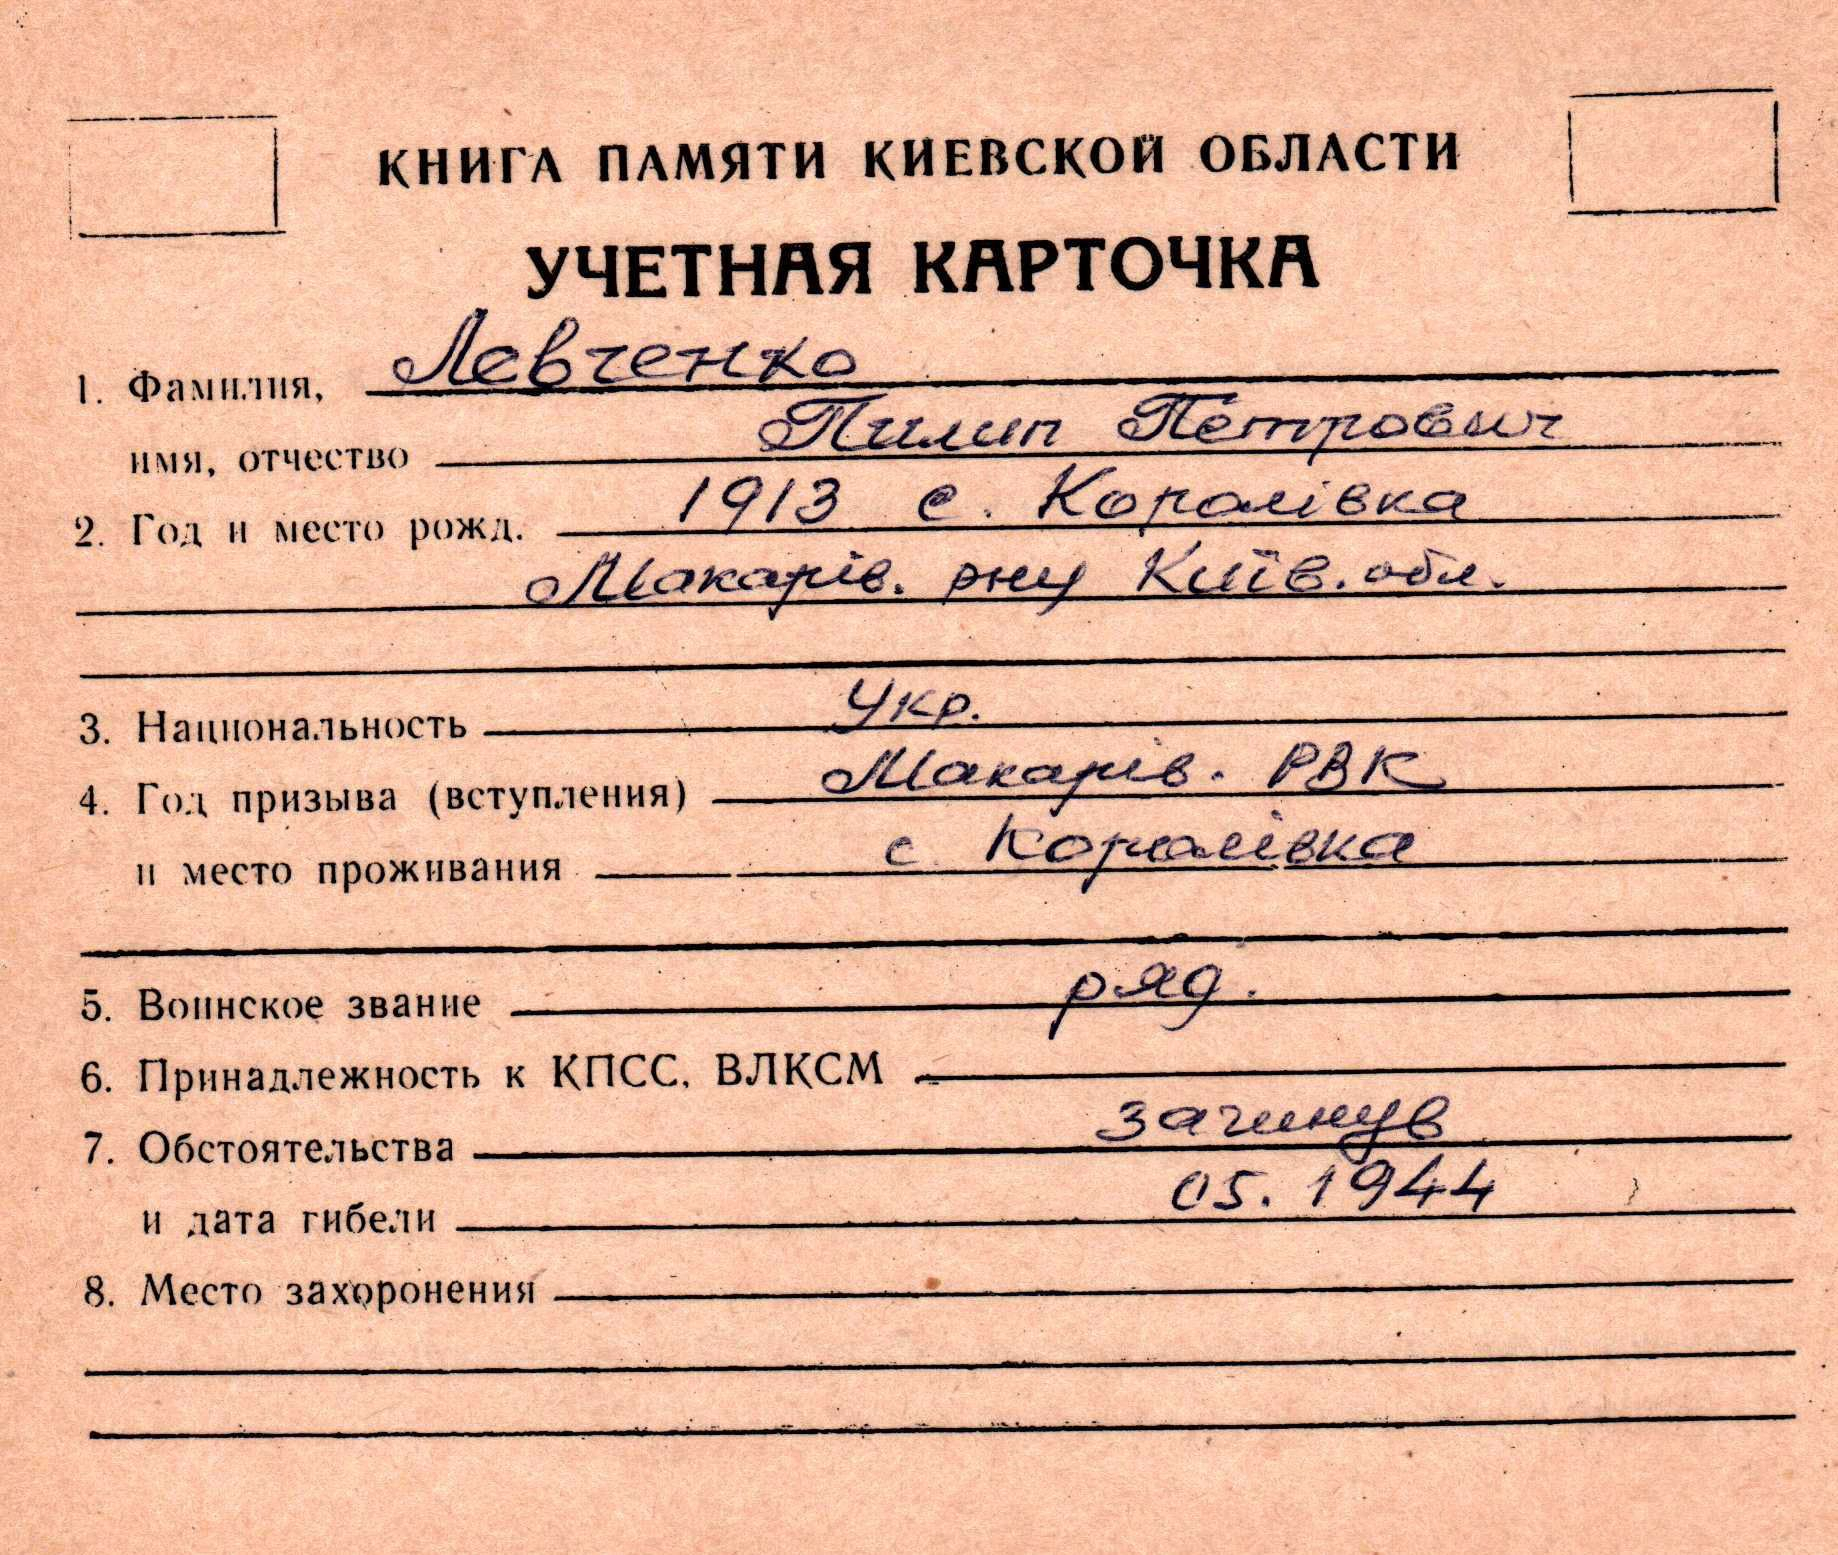 КНИГА ПАМЯТИ КИЕВСКОЙ ОБЛАСТИ
УЧЕТНАЯ КАРТОЧКА
1. Фамилия, Левченко
имя, отчество Пилип Петрович
2. Год и место рожд. 1913 с. Королівка
Макарів. рну Київ. обл.
3. Национальность Укр.
4. Год призыва (вступления) Макарів. РВК
и место проживания с Королівка
5. Воинское звание ряд.
6. Принадлежность к КПСС, ВЛКСМ
7. Обстоятельства загинув
и дата гибели 05. 1944
8. Место захоронения